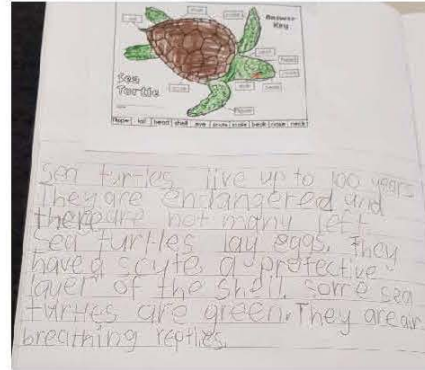 Answer
Key
Sea
Turtle
flipper tail head shell eye scute scale beak nostril neck
Sea turtles live up to 100 years
They are endangered and
there are not many left.
Sea turtles lay eggs. They
have a scute, a protective
layer of the shell. some sea
turtles are green. They are air
breathing reptiles.